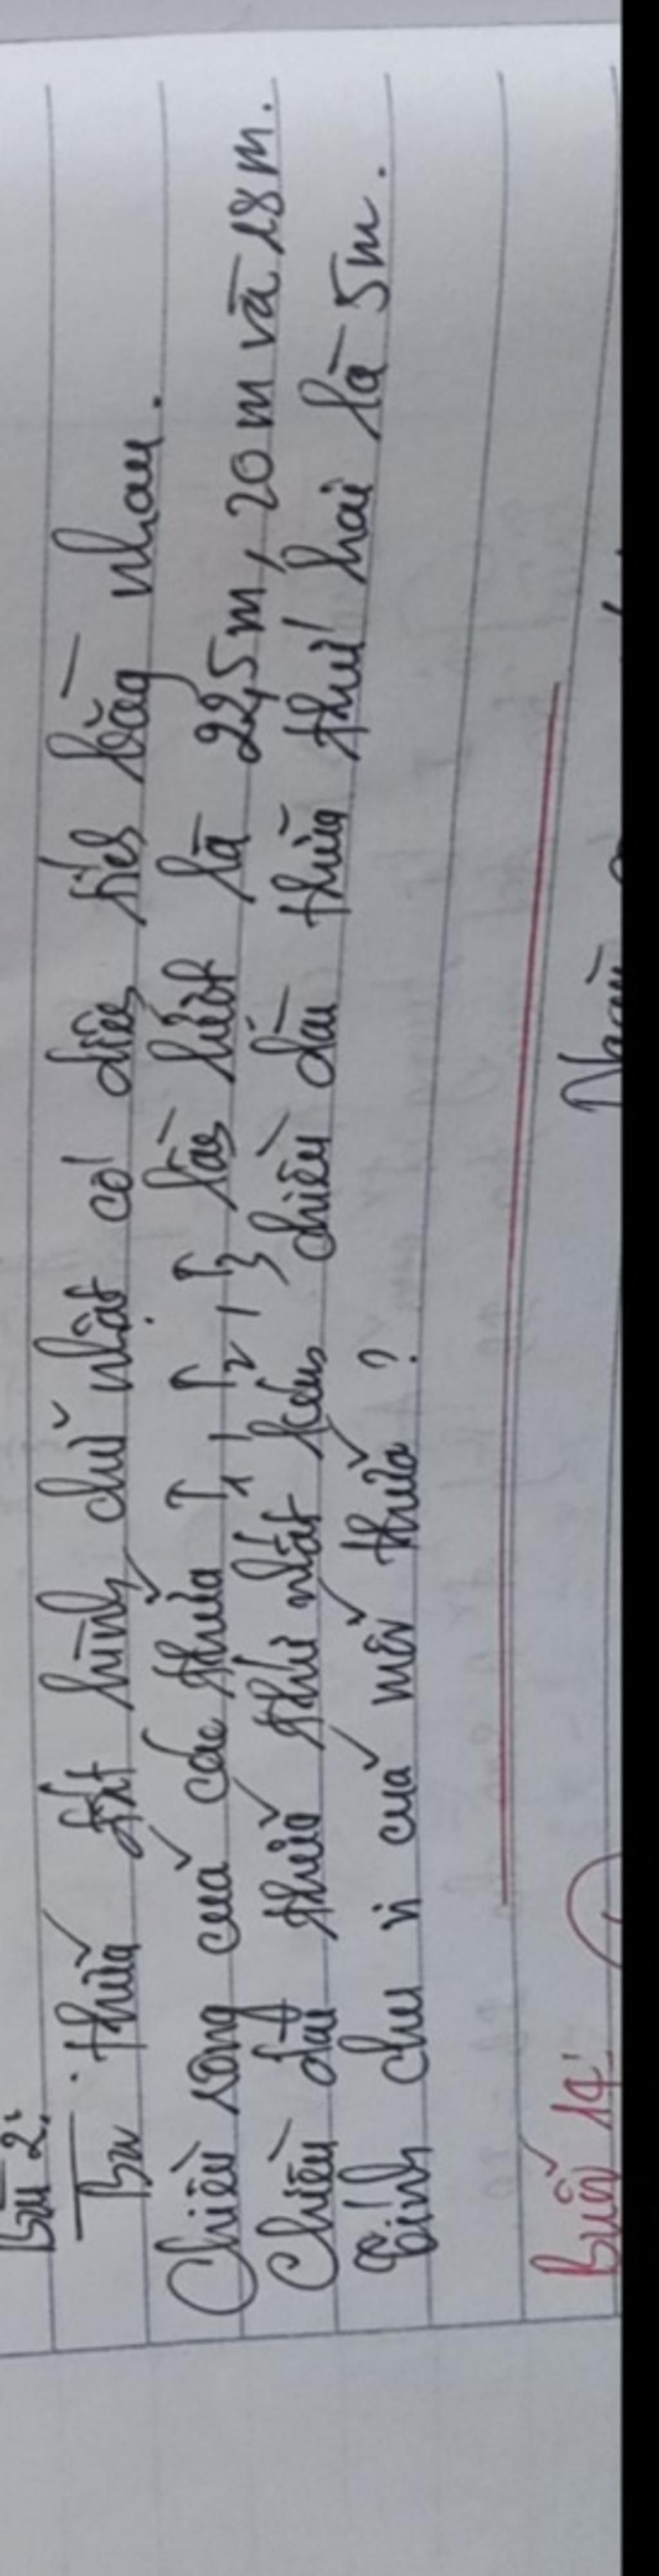 Bài 2:
Ba thửa đất hình chữ nhật có diện tích bằng nhau.
Chiều rộng của các thửa I, II, III lần lượt là 22,5m, 20m và 18m.
Chiều dài thửa thứ nhất kém chiều dài thửa thứ hai là 5m.
Tính chu vi của mỗi thửa?
Buổi 14: